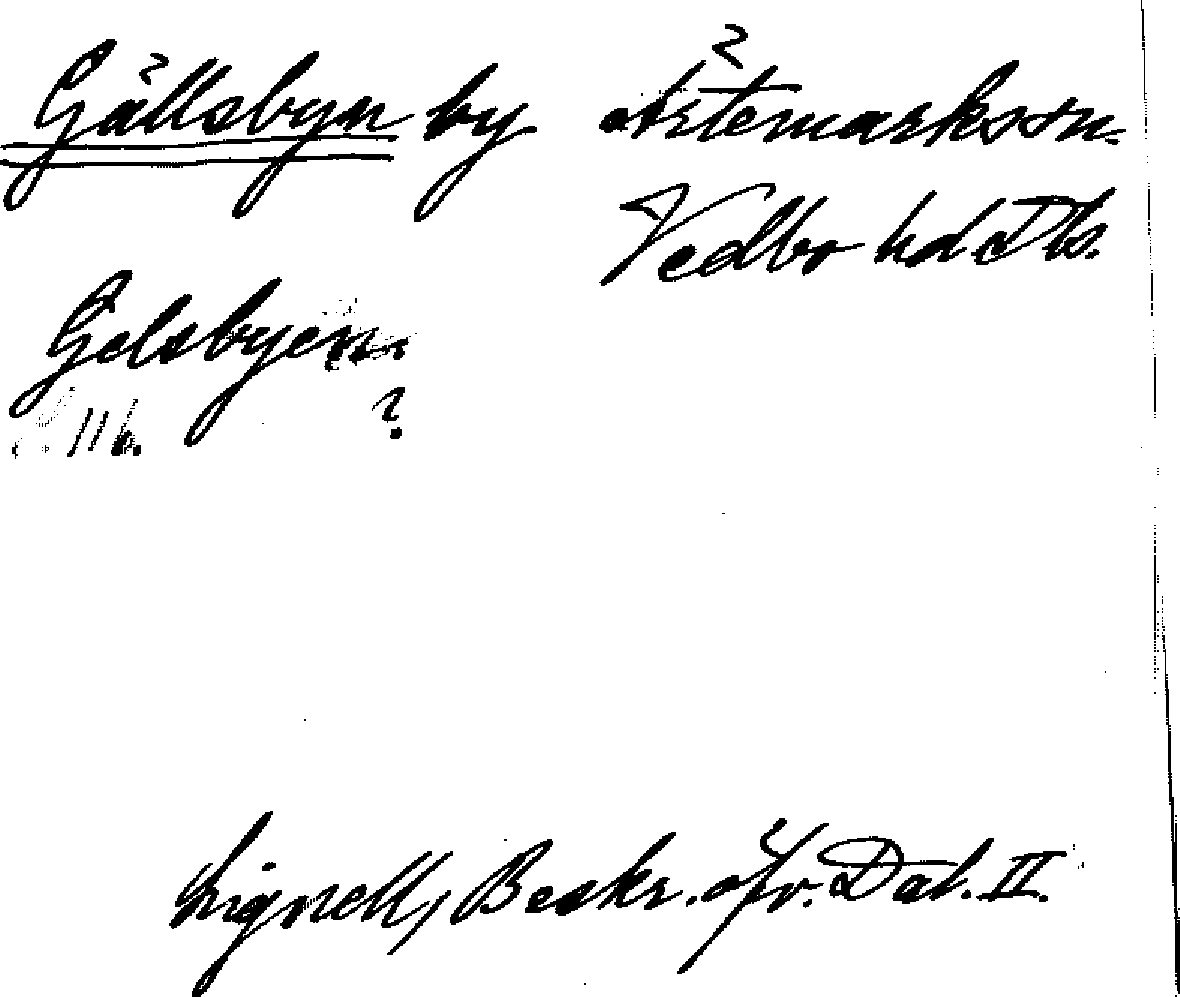 Gällsbyn by Ärtemarks sn.
Vedbo hd Dls.
Gelsbyen
s. 116. ?
Lignell, Beskr. öfv. Dal. II.